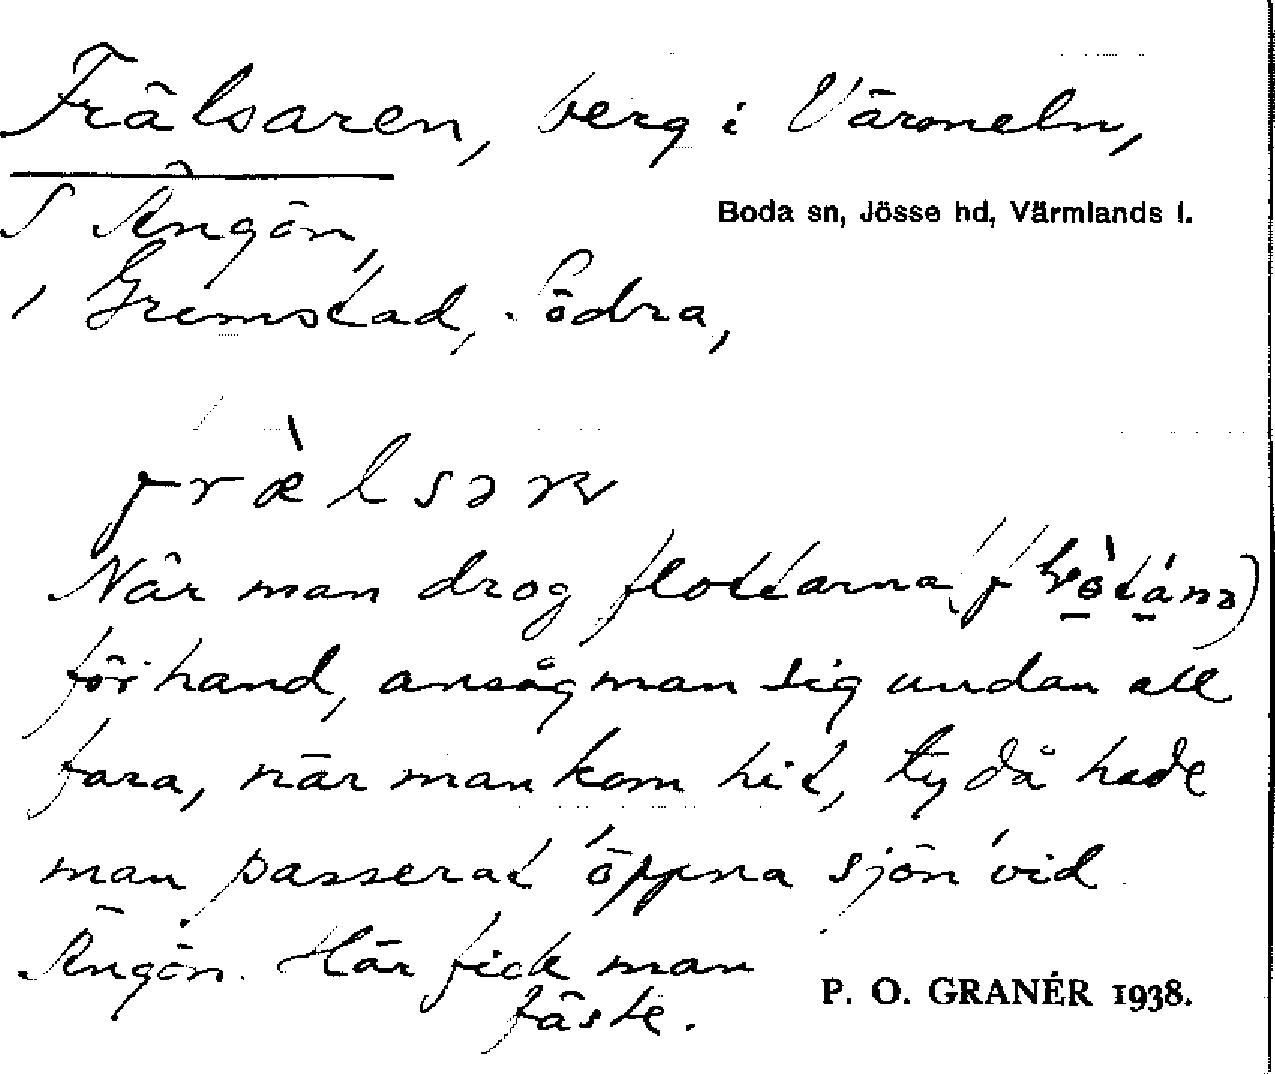 Frälsaren, berg i Värmeln,
Boda sn, Jösse hd, Värmlands l.
S Ängön,
i Gremstad, Södra,
När man drog flottarna
för hand, ansåg man sig undan all
fara, när man kom hit, ty då hade
man passerat 'öppna sjön' vid
Ängön. Här fick man
fäste.
P. O. GRANÉR 1938.